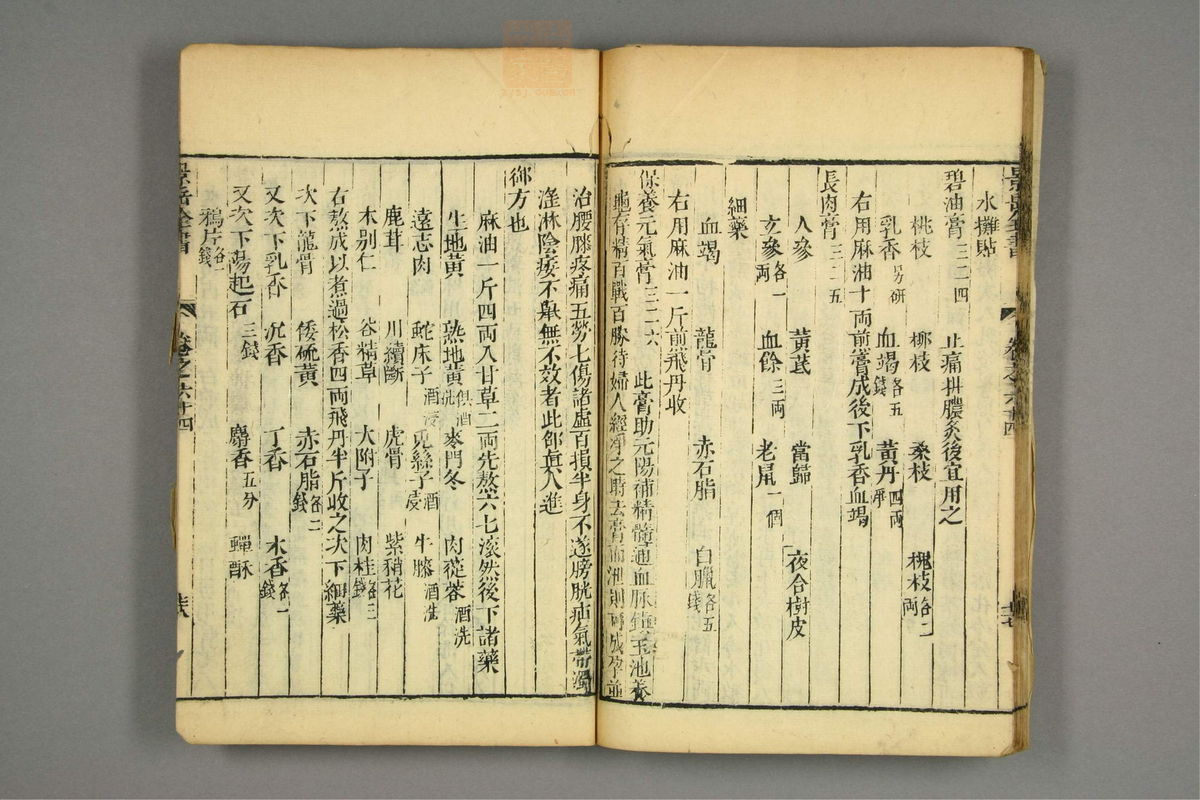 景岳全書 卷之六十四
水攤貼
碧油膏三二四 止痛排膿灸後宜用之
桃枝 柳枝 桑枝 槐枝各二兩
乳香另研 血竭各五錢 黃丹四兩淨
右用麻油十両前膏成後下乳香血竭
長肉膏三二五
人參 黃芪 當歸 夜合樹皮
玄參各一両 血餘三両 老鼠一個
細藥
血竭 龍骨 赤石脂 白臘各五錢
右用麻油一斤前飛丹收
保養元氣膏三二六 此膏助元陽補精髓通血脉鎮玉池養
龜存精百戰百勝待婦人經淨之時去膏而泄則両成孕並
治腰膝疼痛五勞七傷諸虛百損半身不遂膀胱疝氣帶濁
淫淋陰痿不舉無不效者此邵真人進
御方也
麻油一斤四両入甘草二両先熬六七滾然後下諸藥
生地黃 熟地黃俱酒洗 麥門冬 肉蓯蓉酒洗
遠志肉 蛇床子酒浸 兎絲子酒浸 牛膝酒洗
鹿茸 川續斷 虎骨 紫稍花
木别仁 谷精草 大附子 肉桂各三錢
右熬成以煮過松香四両飛丹半斤收之次下細藥
次下龍骨 倭硫黃 赤石脂各二錢
又次下乳香 沉香 丁香 木香各一錢
又次下陽起石三錢 麝香五分 蟬酥
鴉片各一錢
景岳全書 卷之六十四